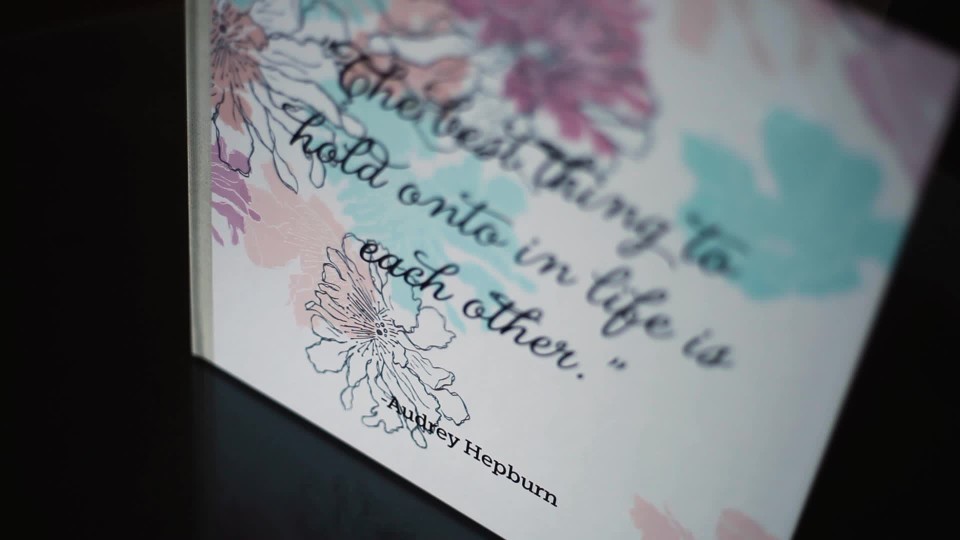 "The best thing to
hold onto in life is
each other."
-Audrey Hepburn